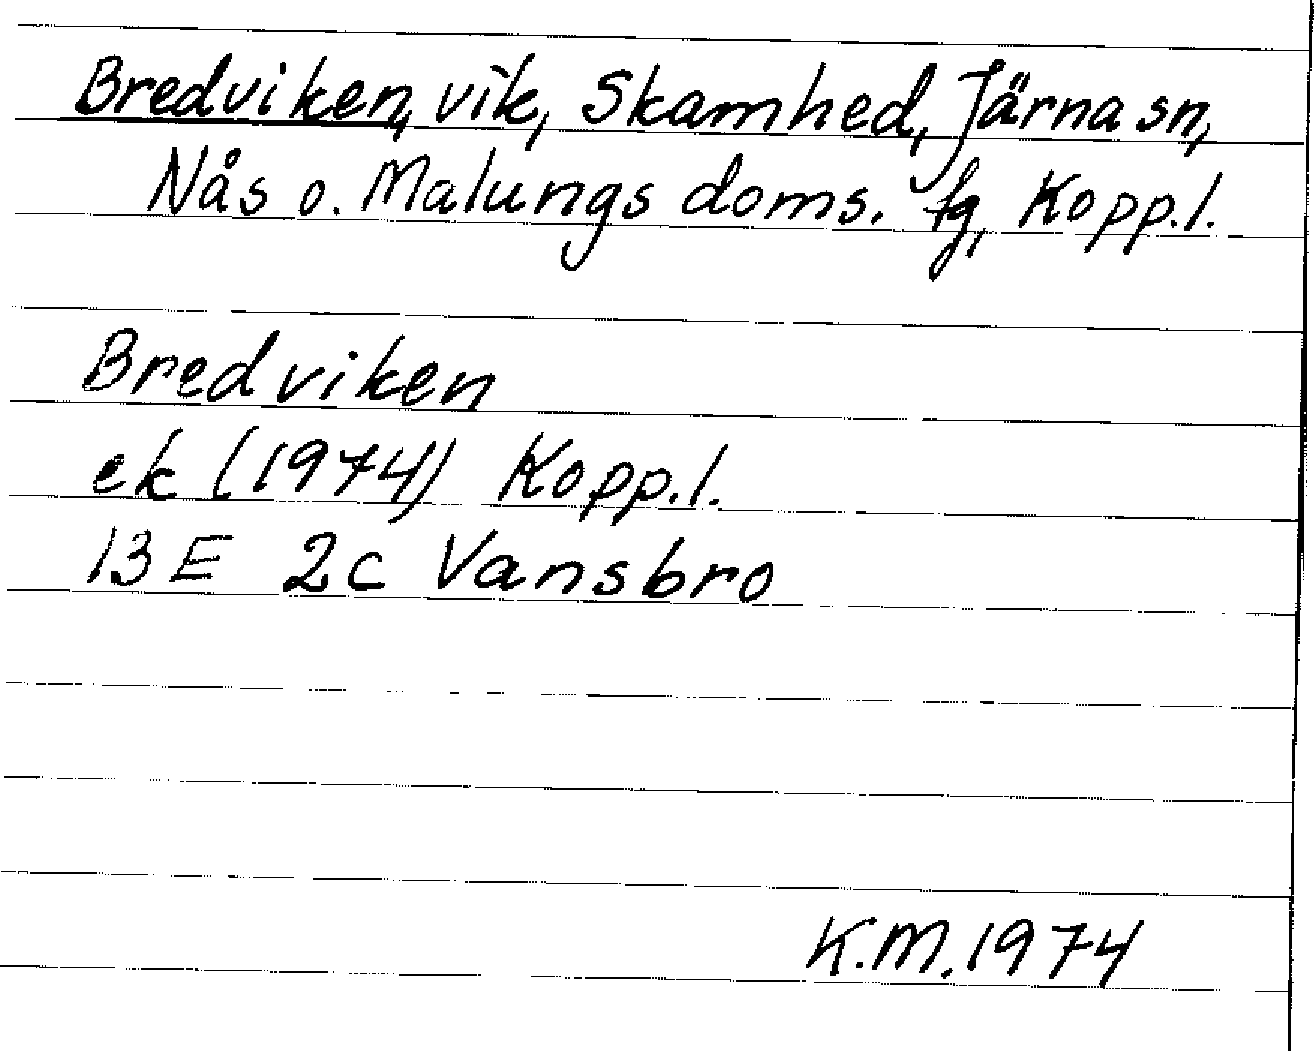 Bredviken, vik, Skamhed, Järna sn,
Nås o. Malungs doms. fg, Kopp.l.
Bredviken
ek (1974) Kopp.l.
13 E 2c Vansbro
K.M. 1974